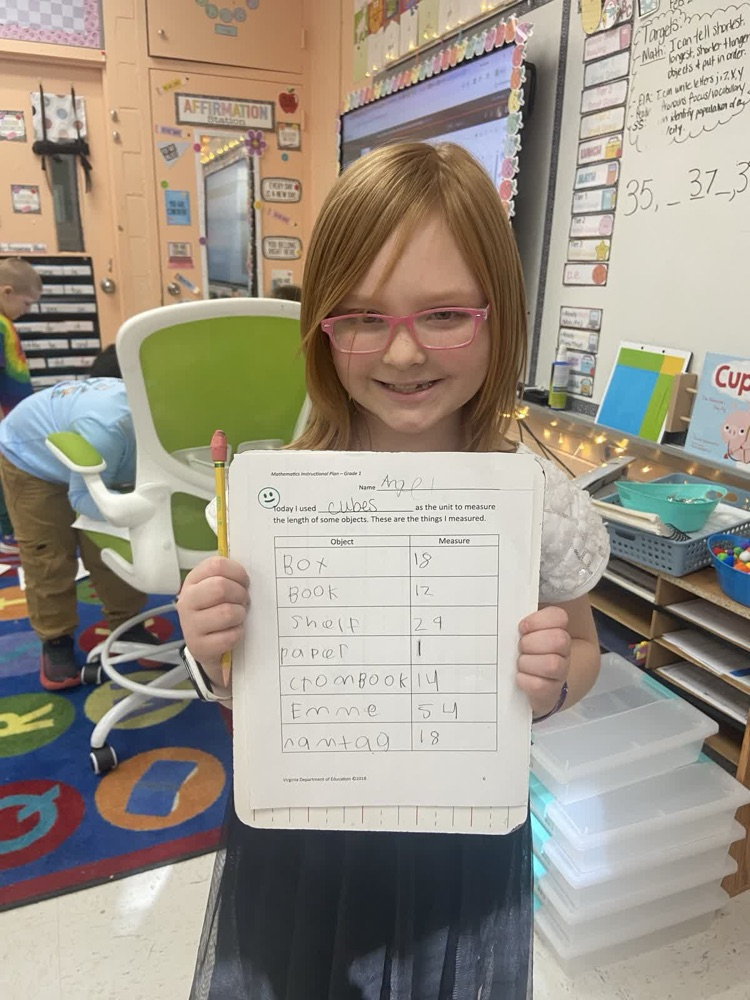 AFFIRMATION
Station
EVERY DAY
IS A NEW DAY
YOU BELONG
RIGHT HERE
Targets:
Math: I can tell shortest,
longest, shorter + longer
objects + put in order.
ELA: I can write letters j, z, x, y
SS:
identify population of a
city.
LUNCH
MATH
35, _ 37_, 3
Cup
Mathematics Instructional Plan – Grade 1
Name Angel
Today I used cubes as the unit to measure
the length of some objects. These are the things I measured.
Object Measure
Box 18
Book 12
Shelf 29
paper 1
cromBook 14
Emme 54
namtag 18
Virginia Department of Education ©2018 6